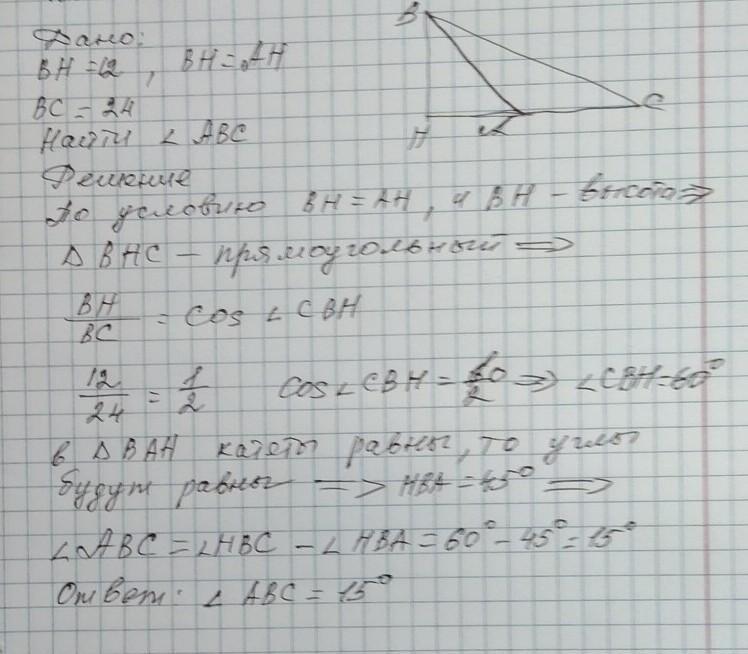 Дано:
BH = 12, BH = AH
BC = 24
Найти ∠ ABC
Решение
По условию BH = AH, и BH – высота ⇒
Δ BHC – прямоугольный ⇒
BH/BC = cos ∠ CBH
12/24 = 1/2 cos ∠ CBH = 1/2 ⇒ ∠CBH = 60°
в Δ BAH катеты равны, то углы
будут равны ⇒ HBA = 45° ⇒
∠ ABC = ∠HBC – ∠ HBA = 60° – 45° = 15°
Ответ: ∠ ABC = 15°
B
C
H
A